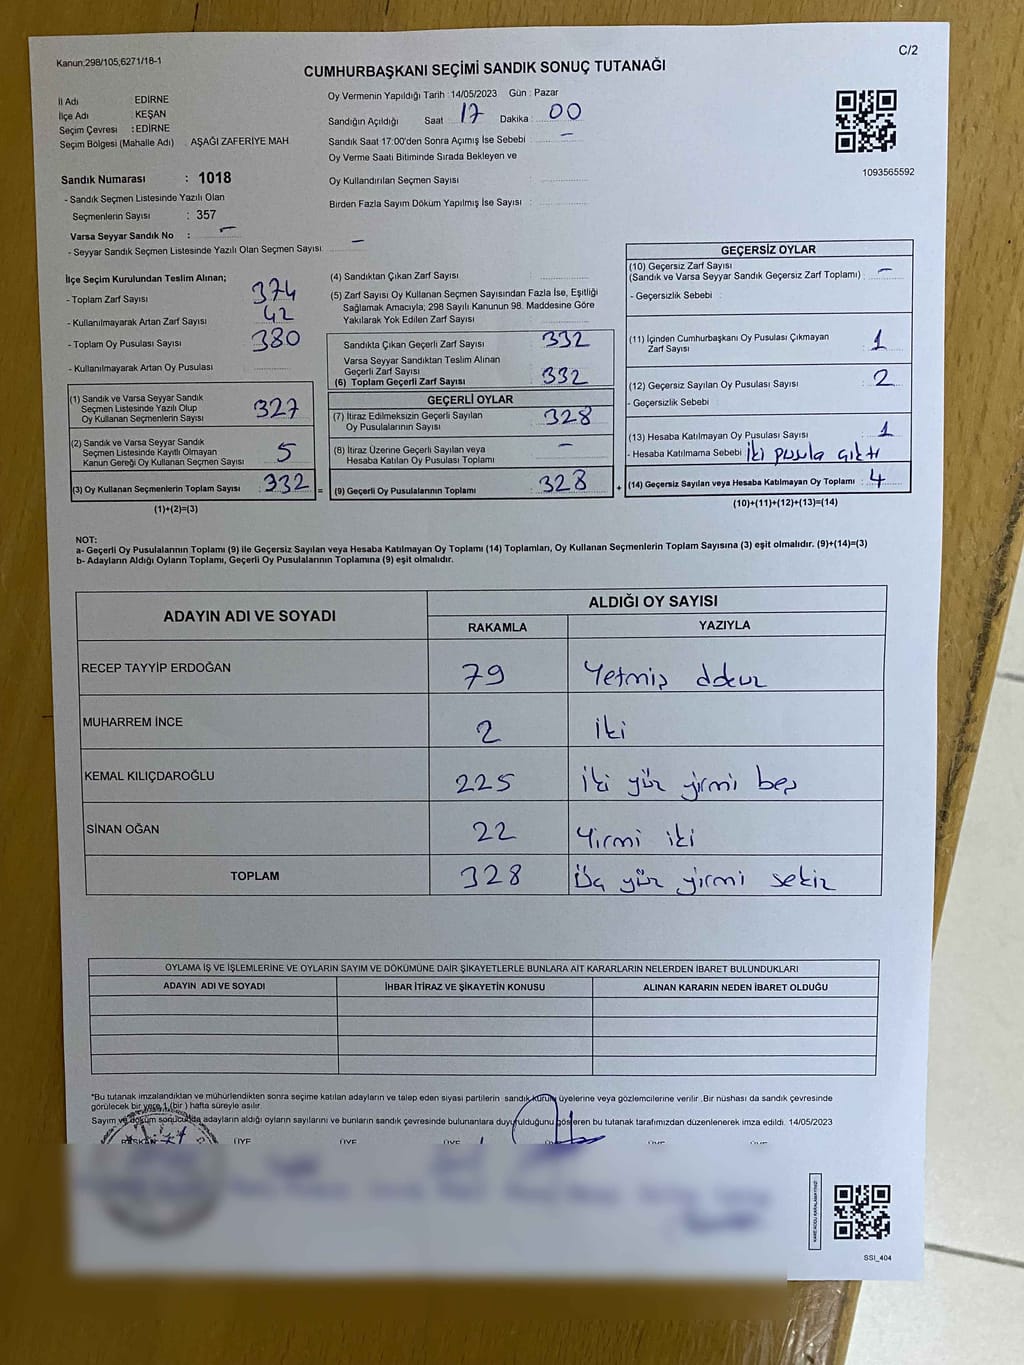 Kanun;298/105;6271/18-1
C/2
CUMHURBAŞKANI SEÇİMİ SANDIK SONUÇ TUTANAĞI
İl Adı EDİRNE
İlçe Adı : KEŞAN
Seçim Çevresi : EDİRNE
Seçim Bölgesi (Mahalle Adı) . AŞAĞI ZAFERİYE MAH
Oy Vermenin Yapıldığı Tarih : 14/05/2023 Gün : Pazar
Sandığın Açıldığı Saat 17 Dakika 00
Sandık Saat 17:00'den Sonra Açımış İse Sebebi : –
Oy Verme Saati Bitiminde Sırada Bekleyen ve
Oy Kullandırılan Seçmen Sayısı :
Birden Fazla Sayım Döküm Yapılmış İse Sayısı :
1093565592
Sandık Numarası : 1018
- Sandık Seçmen Listesinde Yazılı Olan
Seçmenlerin Sayısı : 357
Varsa Seyyar Sandık No : –
- Seyyar Sandık Seçmen Listesinde Yazılı Olan Seçmen Sayısı –
İlçe Seçim Kurulundan Teslim Alınan;
- Toplam Zarf Sayısı 374
- Kullanılmayarak Artan Zarf Sayısı 42
- Toplam Oy Pusulası Sayısı 380
- Kullanılmayarak Artan Oy Pusulası
(1) Sandık ve Varsa Seyyar Sandık
Seçmen Listesinde Yazılı Olup
Oy Kullanan Seçmenlerin Sayısı 327
(2) Sandık ve Varsa Seyyar Sandık
Seçmen Listesinde Kayıtlı Olmayan
Kanun Gereği Oy Kullanan Seçmen Sayısı 5
(3) Oy Kullanan Seçmenlerin Toplam Sayısı : 332 =
(1)+(2)=(3)
(4) Sandıktan Çıkan Zarf Sayısı
(5) Zarf Sayısı Oy Kullanan Seçmen Sayısından Fazla İse, Eşitliği
Sağlamak Amacıyla; 298 Sayılı Kanunun 98. Maddesine Göre
Yakılarak Yok Edilen Zarf Sayısı
Sandıkta Çıkan Geçerli Zarf Sayısı 332
Varsa Seyyar Sandıktan Teslim Alınan
Geçerli Zarf Sayısı
(6) Toplam Geçerli Zarf Sayısı 332
GEÇERLİ OYLAR
(7) İtiraz Edilmeksizin Geçerli Sayılan
Oy Pusulalarının Sayısı 328
(8) İtiraz Üzerine Geçerli Sayılan veya
Hesaba Katılan Oy Pusulası Toplamı –
(9) Geçerli Oy Pusulalarının Toplamı 328 +
GEÇERSİZ OYLAR
(10) Geçersiz Zarf Sayısı
(Sandık ve Varsa Seyyar Sandık Geçersiz Zarf Toplamı) : –
- Geçersizlik Sebebi :
(11) İçinden Cumhurbaşkanı Oy Pusulası Çıkmayan
Zarf Sayısı : 1
(12) Geçersiz Sayılan Oy Pusulası Sayısı : 2
- Geçersizlik Sebebi
(13) Hesaba Katılmayan Oy Pusulası Sayısı 1
- Hesaba Katılmama Sebebi iki pusula çıktı
(14) Geçersiz Sayılan veya Hesaba Katılmayan Oy Toplamı : 4
(10)+(11)+(12)+(13)=(14)
NOT:
a- Geçerli Oy Pusulalarının Toplamı (9) ile Geçersiz Sayılan veya Hesaba Katılmayan Oy Toplamı (14) Toplamları, Oy Kullanan Seçmenlerin Toplam Sayısına (3) eşit olmalıdır. (9)+(14)=(3)
b- Adayların Aldığı Oyların Toplamı, Geçerli Oy Pusulalarının Toplamına (9) eşit olmalıdır.
ADAYIN ADI VE SOYADI
ALDIĞI OY SAYISI
RAKAMLA YAZIYLA
RECEP TAYYİP ERDOĞAN 79 Yetmiş dokuz
MUHARREM İNCE 2 iki
KEMAL KILIÇDAROĞLU 225 iki yüz yirmi beş
SİNAN OĞAN 22 Yirmi iki
TOPLAM 328 Üç yüz yirmi sekiz
OYLAMA İŞ VE İŞLEMLERİNE VE OYLARIN SAYIM VE DÖKÜMÜNE DAİR ŞİKAYETLERLE BUNLARA AİT KARARLARIN NELERDEN İBARET BULUNDUKLARI
ADAYIN ADI VE SOYADI İHBAR İTİRAZ VE ŞİKAYETİN KONUSU ALINAN KARARIN NEDEN İBARET OLDUĞU
*Bu tutanak imzalandıktan ve mühürlendikten sonra seçime katılan adayların ve talep eden siyasi partilerin sandık kurulu üyelerine veya gözlemcilerine verilir .Bir nüshası da sandık çevresinde
görülecek bir yere 1 (bir ) hafta süreyle asılır.
Sayım ve döküm sonucunda adayların aldığı oyların sayılarını ve bunların sandık çevresinde bulunanlara duyurulduğunu gösteren bu tutanak tarafımızdan düzenlenerek imza edildi. 14/05/2023
BAŞKAN ÜYE ÜYE ÜYE ÜYE ÜYE
SSI_404